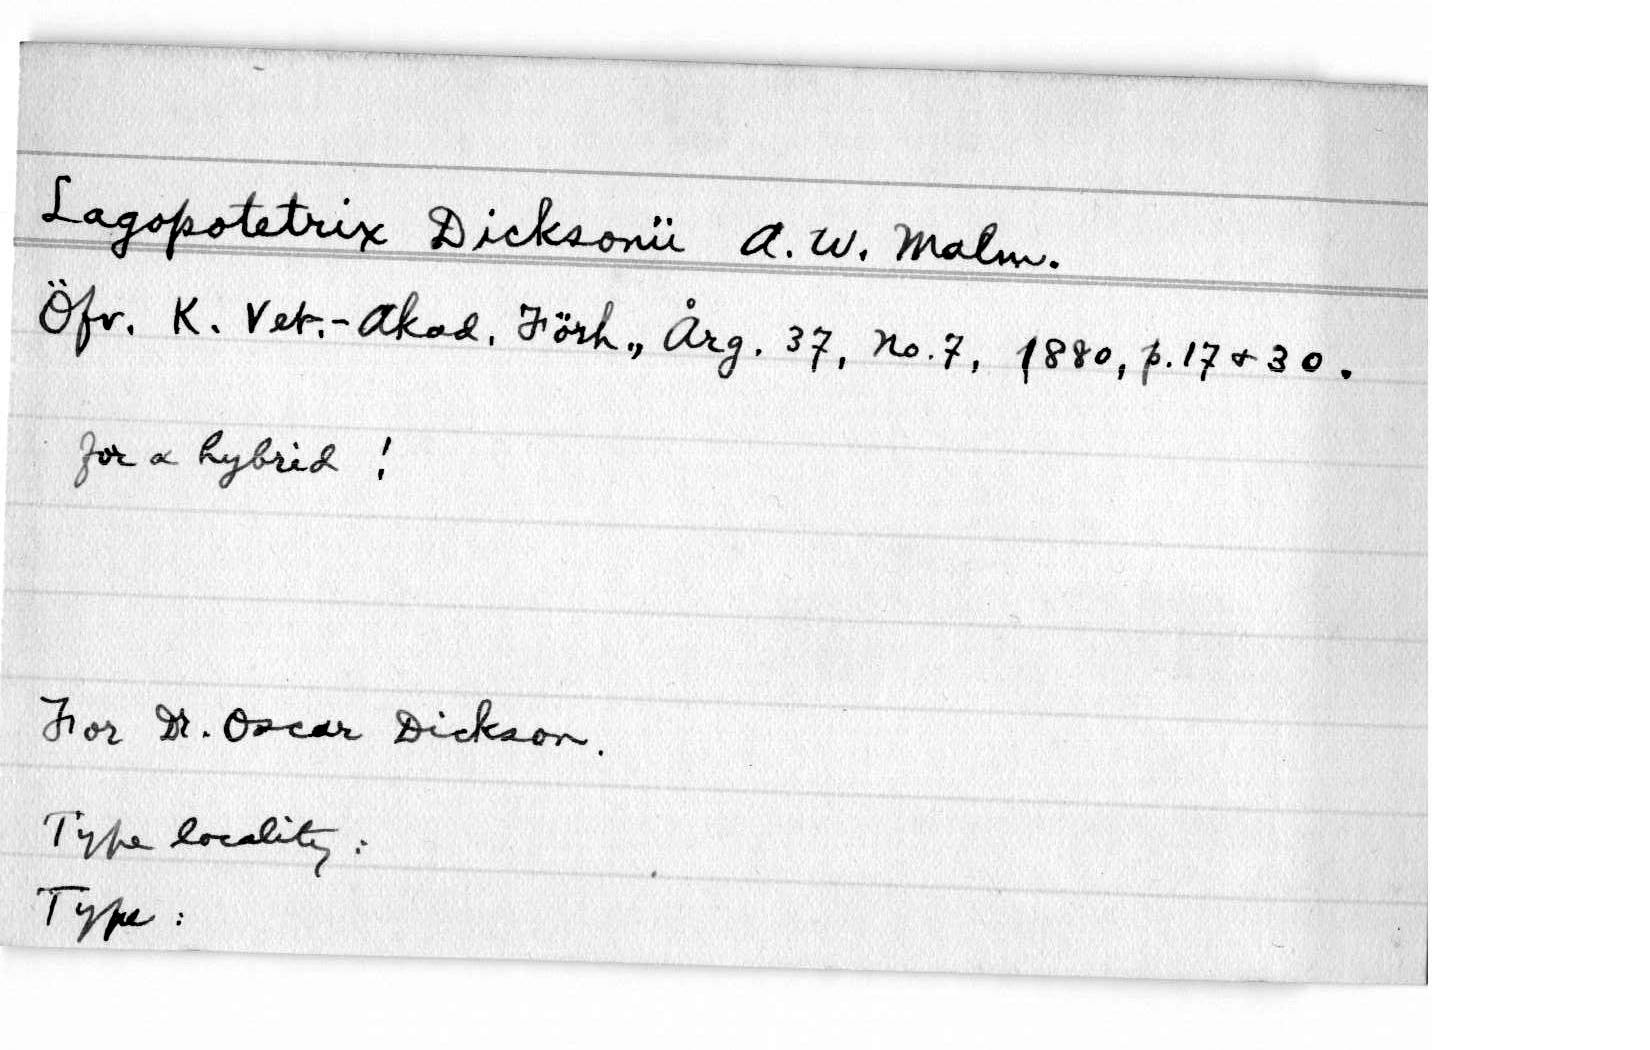 Lagopotetrix Dicksonii A. W. Malm.
Öfv. K. Vet.-Akad. Förh., Årg. 37, No. 7, 1880, p. 17 & 30.
for a hybrid !
For Dr. Oscar Dickson.
Type locality :
Type :